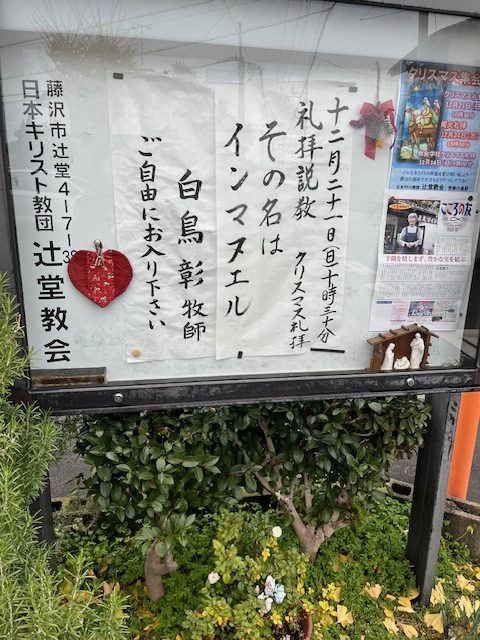 十二月二十一日(日)十時三十分
礼拝説教 クリスマス礼拝
その名は
インマヌエル
白鳥 彰 牧師
ご自由にお入り下さい
藤沢市辻堂4-7-
日本キリスト教団 辻堂教会
クリスマス集会
こころの友
手間を惜しまず、豊かな実を結ぶ